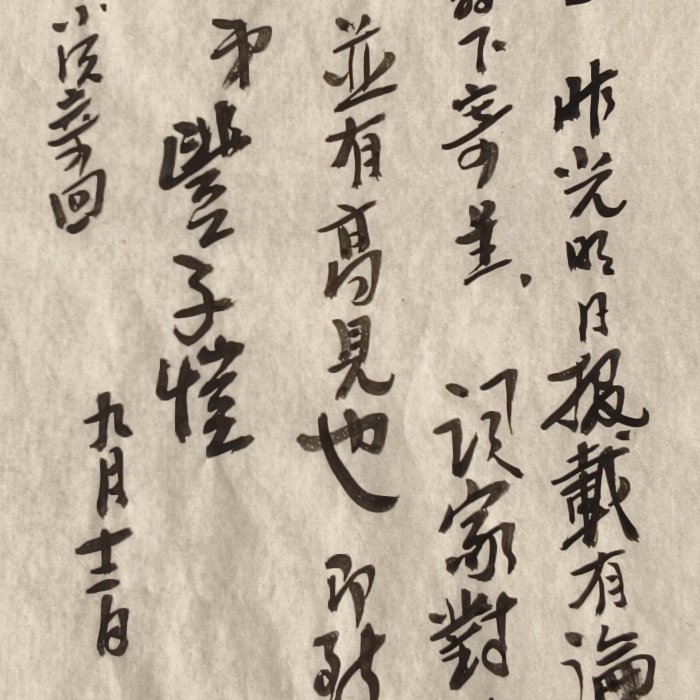 昨光明日报載有論
下寄呈、詞家對
並有高見也 即致
弟豐子愷
九月十二日
寄回